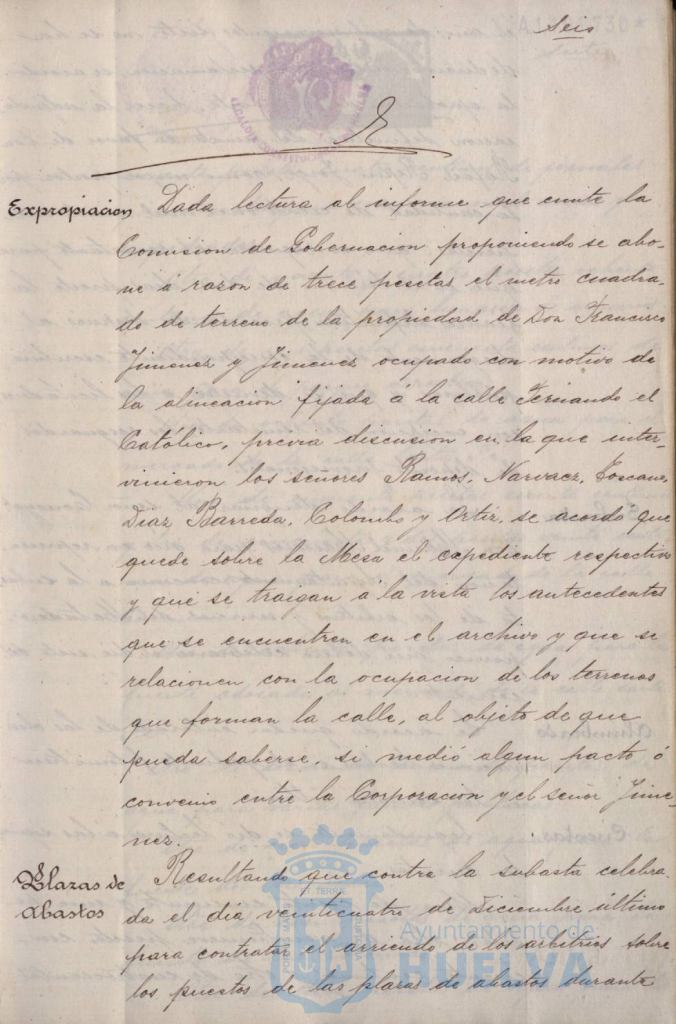 Seis
ALCALDIA CONSTITUCIONAL
Expropiacion
Dada lectura al informe que emite la
Comision de Gobernacion proponiendo se abo-
ne á razon de trece pesetas el metro cuadra-
do de terreno de la propiedad de Don Francisco
Jimenez y Jimenez ocupado con motivo de
la alineacion fijada á la calle Fernando el
Católico, previa discusion en la que inter-
vinieron los señores Ramos, Narvaez, Toscano,
Diaz Barreda, Colombo y Ortiz, se acordó que
quede sobre la Mesa el expediente respectivo
y que se traigan á la vista los antecedentes
que se encuentren en el archivo y que se
relacionen con la ocupacion de los terrenos
que forman la calle, al objeto de que
pueda saberse, si medió algun pacto ó
convenio entre la Corporacion y el señor Jime-
nez.
Plazas de
Abastos
Resultando que contra la subasta celebra-
da el dia veinticuatro de Diciembre último
para contratar el arriendo de los arbitrios sobre
los puestos de las plazas de abastos durante
Ayuntamiento de
HUELVA